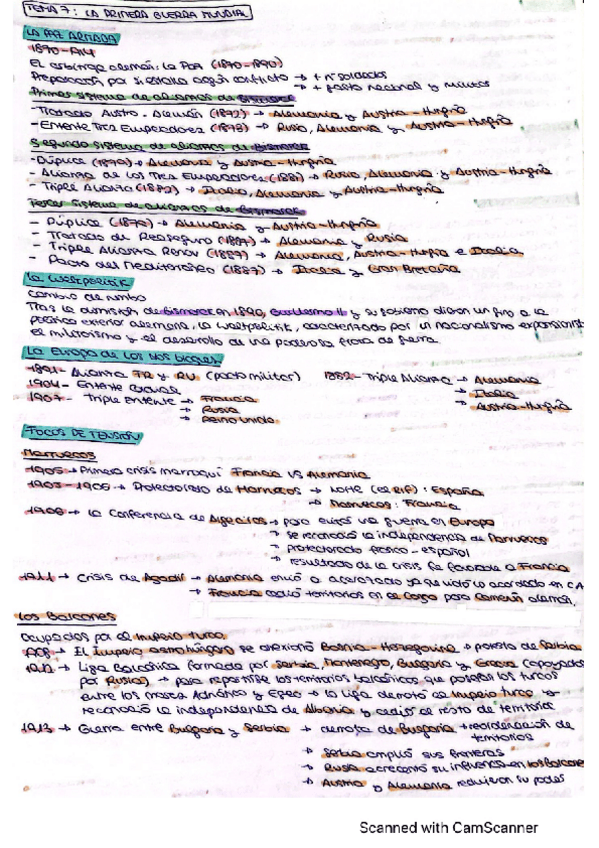 TEMA 7: LA PRIMERA GUERRA MUNDIAL
LA PAZ ARMADA
1870-1914
El arbitraje alemán: la Paz (1870-1890)
Preparación por si estalla algún conflicto → + nº soldados
→ + gasto nacional y militar
Primer sistema de alianzas de Bismarck
- Tratado Austro-Alemán (1872) → Alemania y Austria-Hungría
- Entente Tres Emperadores (1873) → Rusia, Alemania y Austria-Hungría
Segundo sistema de alianzas de Bismarck
- Dúplice (1879) → Alemania y Austria-Hungría
- Alianza de los Tres Emperadores (1881) → Rusia, Alemania y Austria-Hungría
- Triple Alianza (1882) → Italia, Alemania y Austria-Hungría
Tercer sistema de alianzas de Bismarck
- Dúplice (1879) → Alemania y Austria-Hungría
- Tratado de Reaseguro (1887) → Alemania y Rusia
- Triple Alianza Renov (1887) → Alemania, Austria-Hungría e Italia
- Pacto del Mediterráneo (1887) → Italia y Gran Bretaña
La Weltpolitik
Cambio de rumbo
Tras la dimisión de Bismarck en 1890, Guillermo II y su gobierno dieron un giro a la
política exterior alemana, la weltpolitik, caracterizada por un nacionalismo expansionista
el militarismo y el desarrollo de una poderosa flota de guerra.
La Europa de los dos bloques
1891- Alianza FR y RU (pacto militar) 1882- Triple Alianza → Alemania
1904- Entente Cordiale → Italia
1907- Triple Entente → Francia → Austria-Hungría
→ Rusia
→ Reino Unido
FOCOS DE TENSIÓN
Marruecos
1905 → Primera crisis marroquí Francia VS Alemania
→ Protectorado de Marruecos → Norte (el Rif): España
→ Marruecos: Francia
1906 → La Conferencia de Algeciras → para evitar una guerra en Europa
→ se reconoció la independencia de Marruecos
→ protectorado franco-español
→ resultado de la crisis fue favorable a Francia
1911 → Crisis de Agadir → Alemania envió a acorazado ya que violó lo acordado en C.A
→ Francia cedió territorios en el Congo para Camerún alemán.
Los Balcanes
Ocupados por el Imperio turco
1908 → El Imperio astrohúngaro se anexionó Bosnia-Herzegovina → protesta de Serbia
1912 → Liga Balcánica formada por Serbia, Montenegro, Bulgaria y Grecia (apoyados
por Rusia) → para repartirse los territorios balcánicos que poseían los turcos
entre los mares Adriático y Egeo → la liga derrotó al Imperio turco →
reconoció la independencia de Albania y cedió el resto de territorios
1913 → Guerra entre Bulgaria y Serbia → derrota de Bulgaria → reordenación de
territorios
→ Serbia amplió sus fronteras
→ Rusia acrecentó su influencia en los Balcanes
→ Austria y Alemania redujeron su poder
Scanned with CamScanner